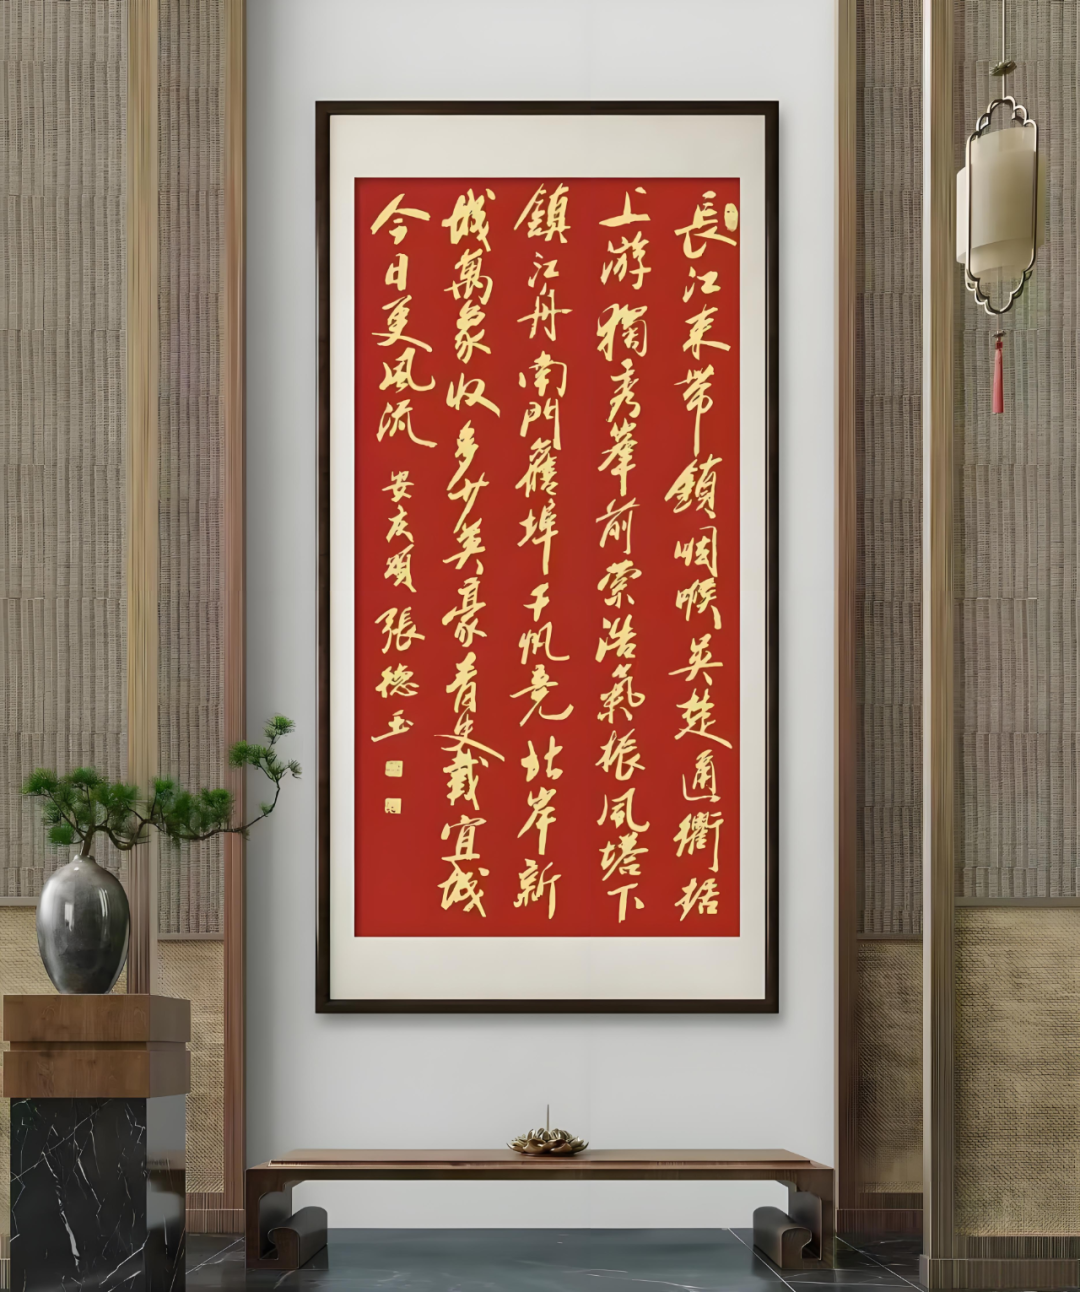 長江束帶鎖咽喉吳楚通衢据
上游獨秀峯前縈浩氣振風塔下
鎮江舟南門舊埠千帆竞北岸新
城萬象收多少英豪青史載宜城
今日更風流
安庆頌 張德玉